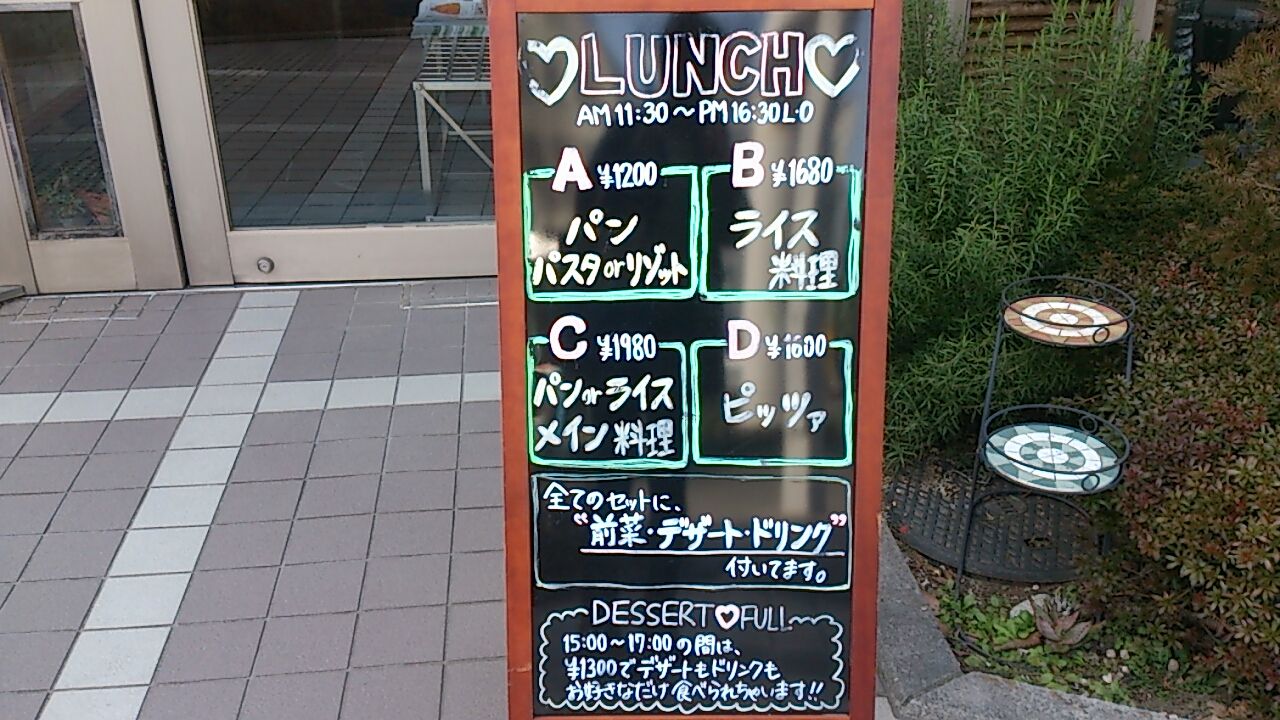 LUNCH
AM 11:30～PM 16:30 L・O
A ¥1200
パン
パスタ or リゾット
B ¥1680
ライス
料理
C ¥1980
パン or ライス
メイン 料理
D ¥1600
ピッツァ
全てのセットに、
“前菜・デザート・ドリンク”
付いてます。
DESSERT♡FULL
15:00～17:00の間は、
¥1300でデザートもドリンクも
お好きなだけ食べられちゃいます!!